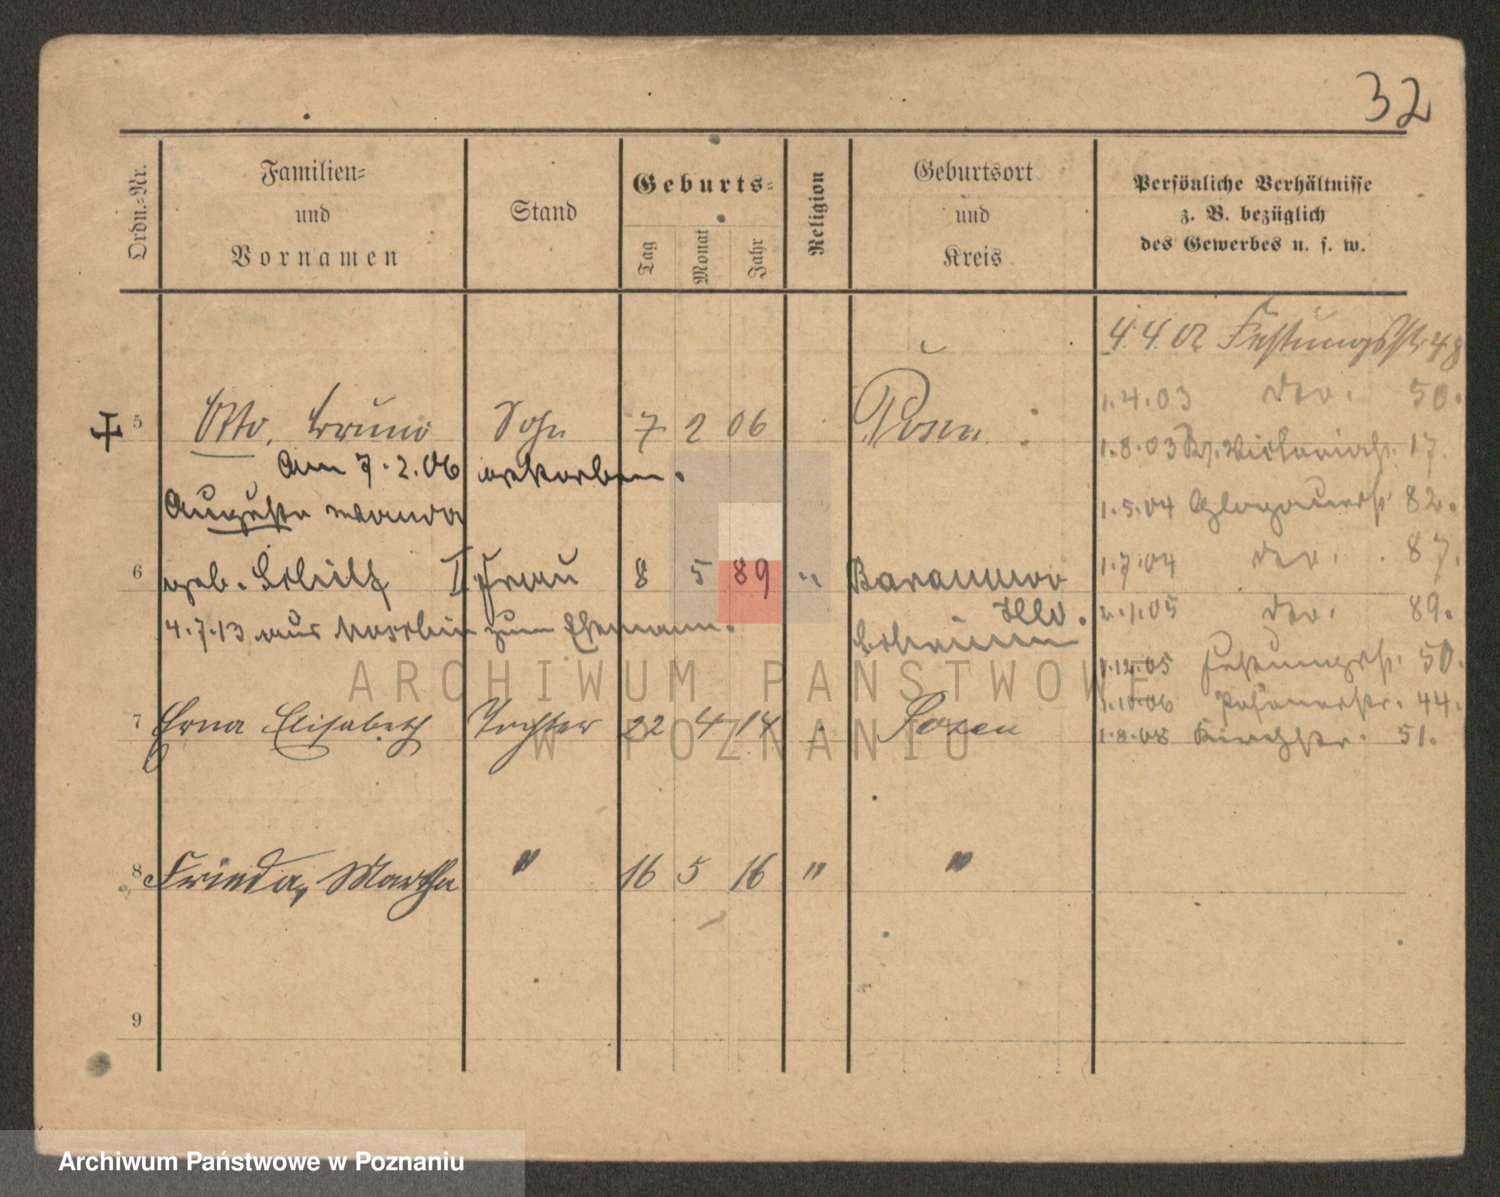 32
Ordn.-Nr.
Familien-
und
Vornamen
Stand
Geburts-
Tag
Monat
Jahr
Religion
Geburtsort
und
Kreis
Persönliche Verhältnisse
z. B. bezüglich
des Gewerbes u. s. w.
4.4.02 Festungsstr 48
1.4.03 50.
5 Otto, Bruno Sohn 7 2 06 Posen
1.8.03 17.
am 7.2.06 gestorben.
Auguste Wanda
1.5.04 Glogauerstr 82.
6 geb. II Frau 8 5 89 " Baranowo
1.7.04 87.
1.05 89.
4.7.13 aus Moschin zum Ehemann.
Schrimm
1.12.05 Festungsstr. 50.
1.10.06 44.
7 Erna Elisabeth Tochter 22 4 14 Posen
1.8.08 51.
8 Frieda, Martha " 16 5 16 " "
9
ARCHIWUM PAŃSTWOWE
W POZNANIU
Archiwum Państwowe w Poznaniu